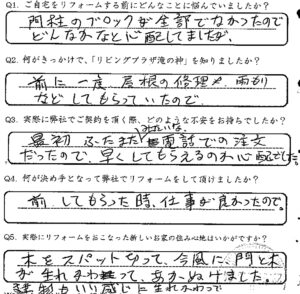 Q1. ご自宅をリフォームする前にどんなことに悩んでいましたか?
門柱のブロックが全部でなかったので
どんなかなと心配してましたが、
Q2. 何がきっかけで、「リビングプラザ滝の神」を知りましたか?
前に一度、屋根の修理や雨もり
などしてもらっていたので
Q3. 実際に弊社でご契約を頂く際、どのような不安をお持ちでしたか?
最初 ふたまたみたいな、電話での注文
だったので、早くしてもらえるのか心配でした
Q4. 何が決め手となって弊社でリフォームをして頂けましたか?
前 してもらった時、仕事が良かったので。
Q5. 実際にリフォームをおこなった新しいお家の住み心地はいかがですか?
木をスパット切って、今風に門と木
が生れかわって、あかぬけました。
いい感じに生れかわって